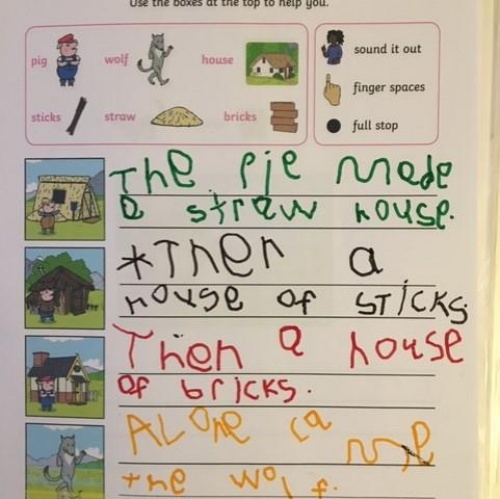 Use the boxes at the top to help you.
pig wolf house
sound it out
finger spaces
sticks straw bricks
full stop
The pie made
a straw house.
*Then a
house of sticks
Then a house
of bricks.
ALone came
the wolf.